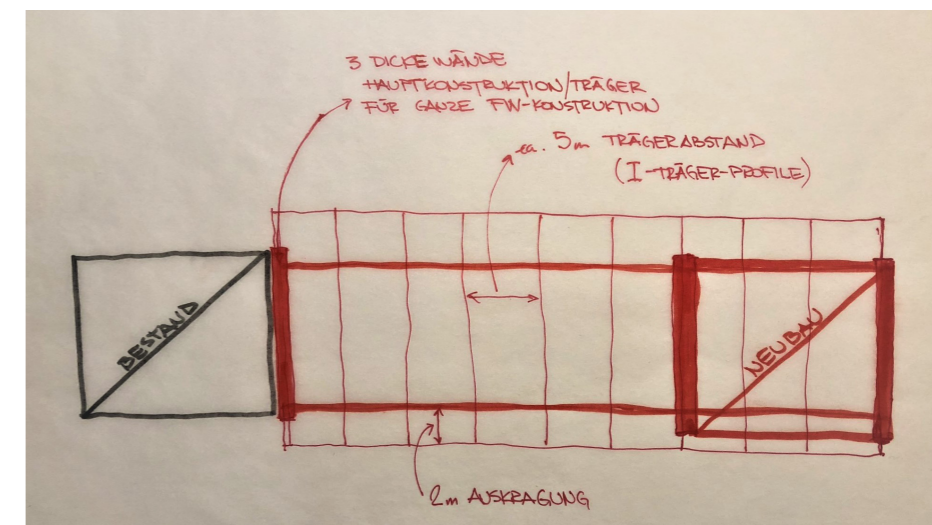 3 DICKE WÄNDE
HAUPTKONSTRUKTION/TRÄGER
FÜR GANZE FW-KONSTRUKTION
ca. 5m TRÄGERABSTAND
(I-TRÄGER-PROFILE)
BESTAND
NEUBAU
2m AUSKRAGUNG